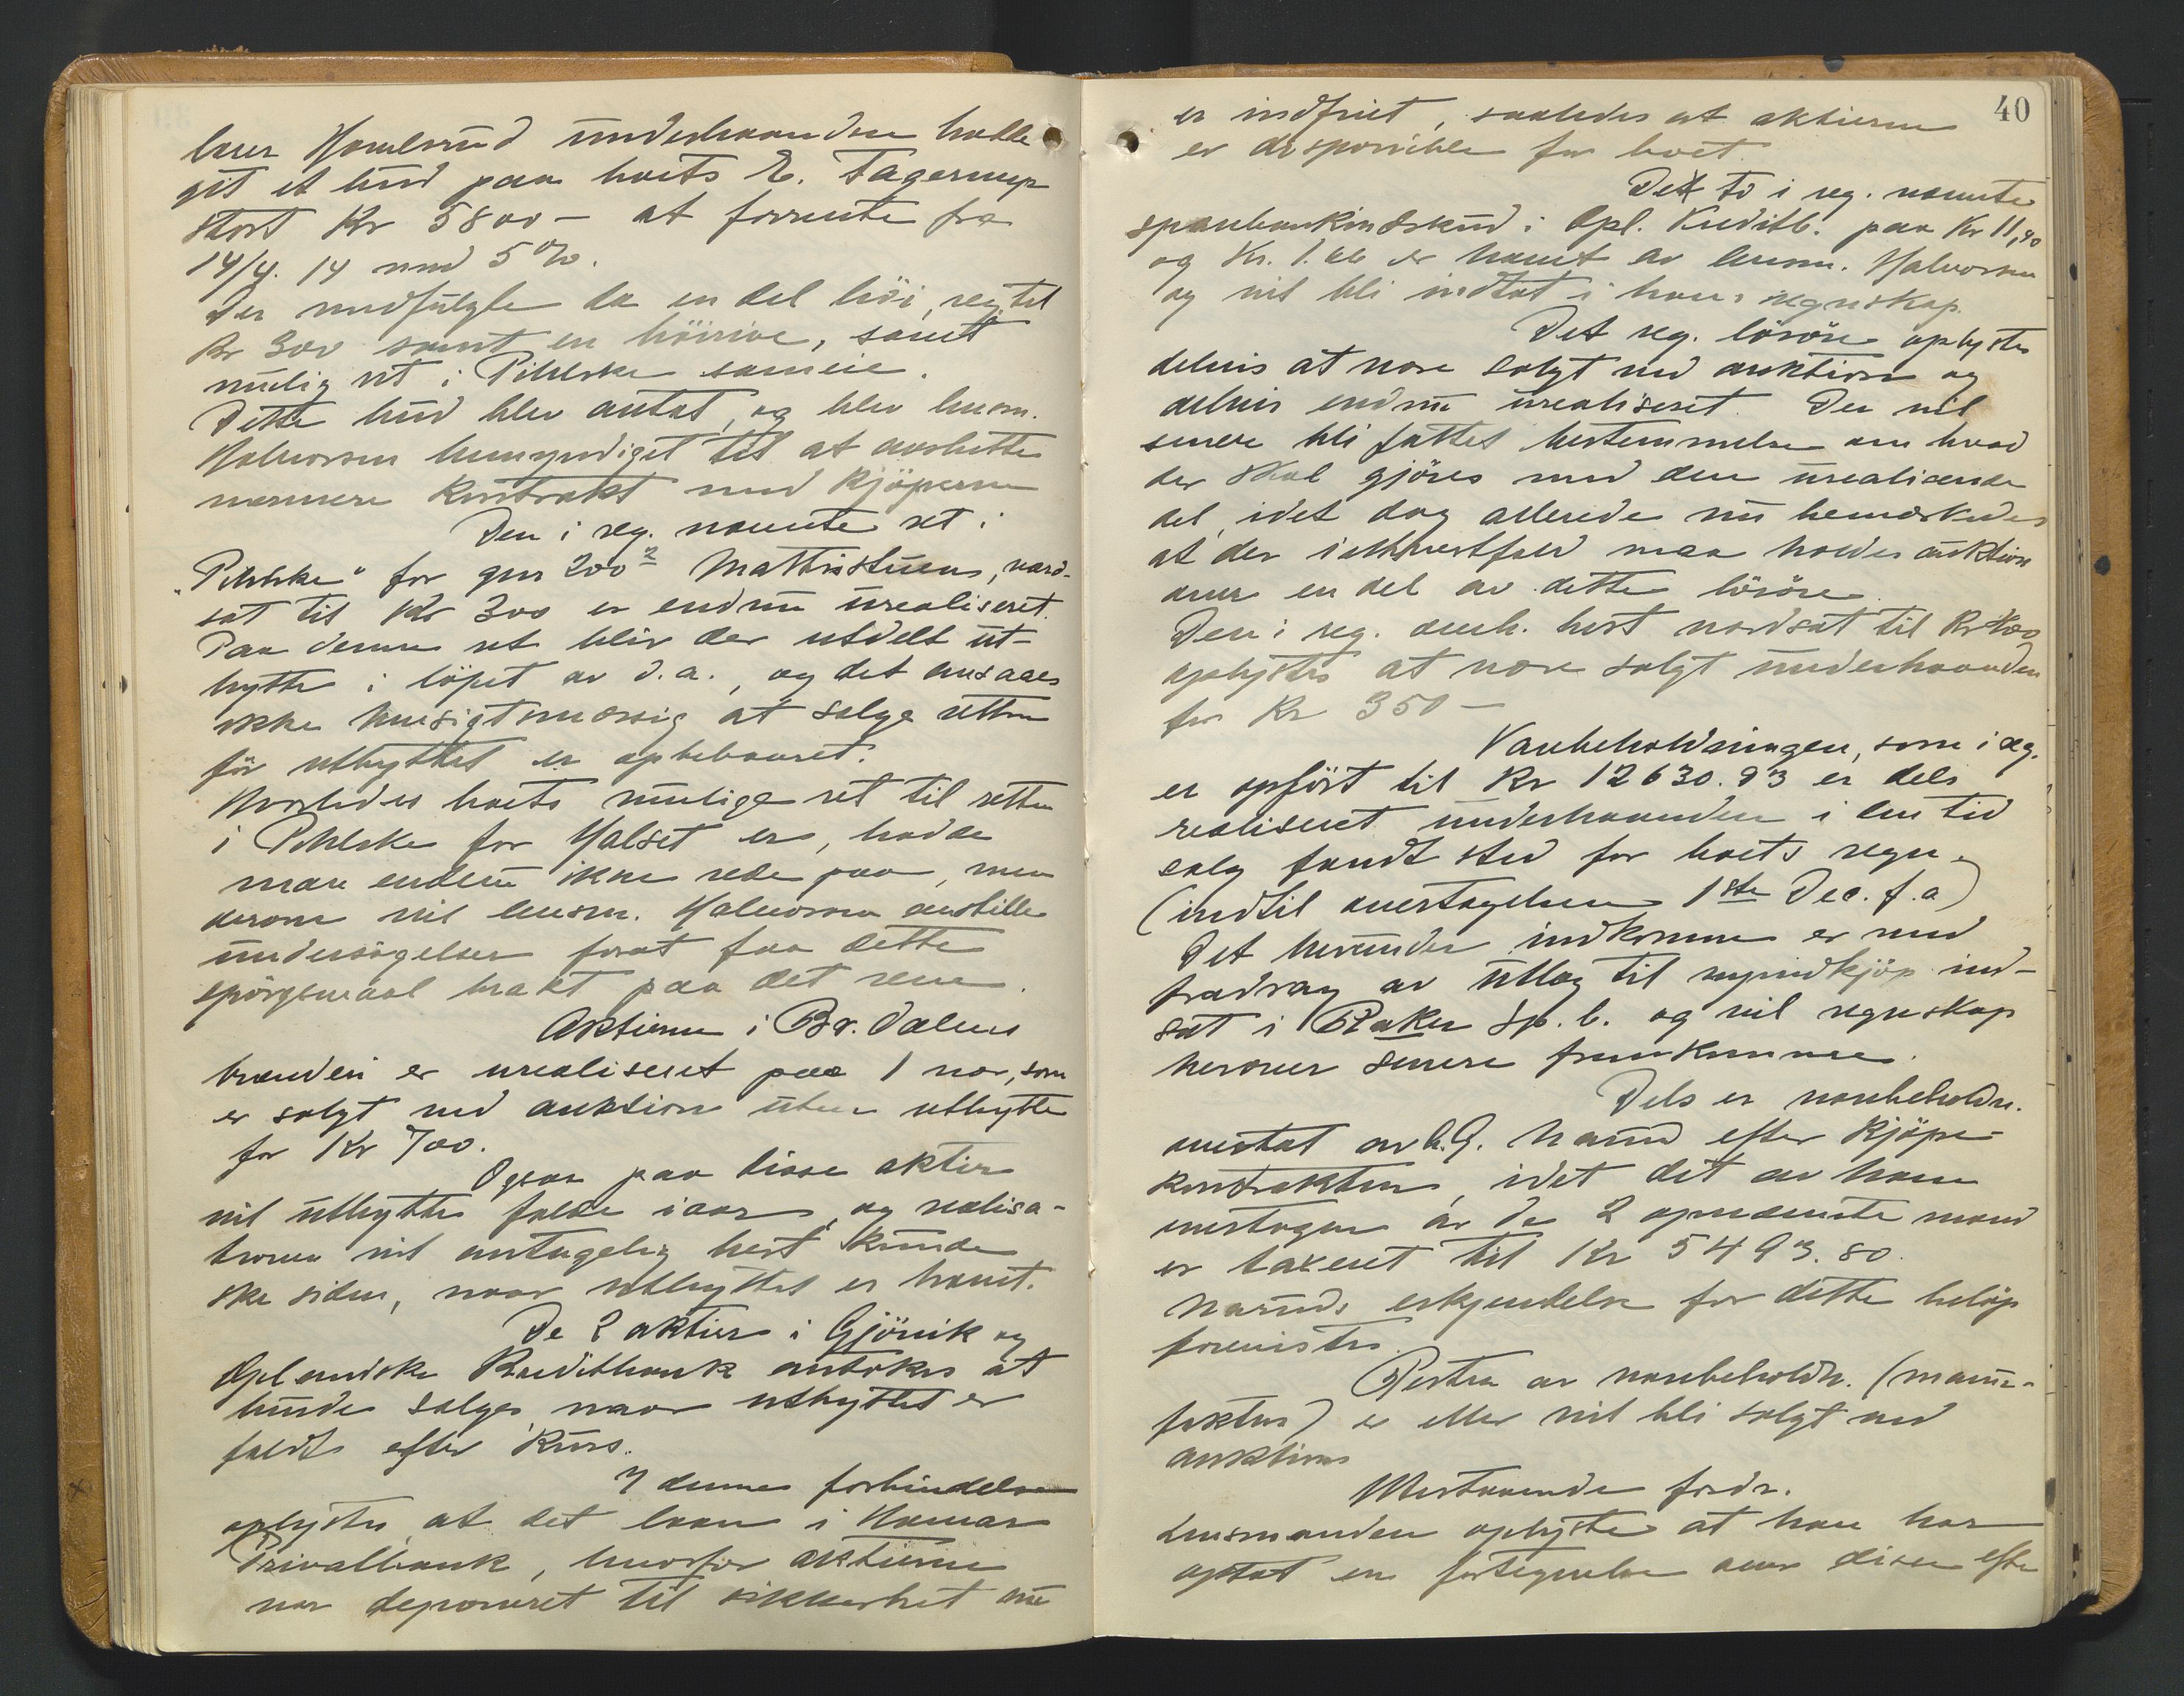 Hamlerud underhaanden hadde
git et bud paa boets E. Fagernes
stort Kr 5800 – at forrente fra
14/4. 14 med 5 %.
Der medfulgte da en del höi, reg. til
Kr 300 samt en höirive, samt
mulig ret i Pihlske sameie.
Dette bud blev antat, og blev lensm.
Halvorsen bemyndiget til at avslutte
nærmere kontrakt med kjöperne
Den i reg. nævnte ret i
"Pihlske" for gnr 200² Mattisstuens, værd-
sat til Kr 300 er endnu urealiseret.
Paa denne ret blir der utdelt ut-
bytte i löpet av d.a., og det ansaaes
ikke hensigtsmæssig at sælge retten
för utbyttet er oppebaaret.
Hvorledes boets mulige ret til retten
i Pihlske for Halset er, hadde
man endnu ikke rede paa, men
derom vil lensm. Halvorsen anstille
undersögelser forat faa dette
spörgsmaal bragt paa det rene.
Aktierne i Br. Dalens
brænderi er urealiseret paa 1 nær, som
er solgt ved auktion uten utbytte
for Kr 700.
Ogsaa paa disse aktier
vil utbytte falde iaar, og realisa-
tionen vil antagelig best kunde
ske siden, naar utbyttet er hævet.
De 2 aktier i Gjövik og
Oplandske Kreditbank antokes at
burde sælges naar utbyttet er
faldt efter kurs.
I denne forbindelse
oplystes, at det laan i Hamar
Privatbank, hvorfor aktierne
var deponeret til sikkerhet nu
40
er indfriet, saaledes at aktierne
er disponible for boet.
De to i reg. nævnte
sparebankindskud i Opl. Kreditb. paa Kr 11,90
og Kr. 1.66 er hævet av lensm. Halvorsen
og vil bli indtat i hans regnskap.
Det reg. lösöre oplystes
delvis at være solgt ved auktion og
delvis endnu urealiseret. Der vil
senere bli fattet bestemmelse om hvad
der skal gjöres med den urealiserede
del, idet dog allerede nu bemærkedes
at der ialfald maa holdes auktion
over en del av dette lösöre.
Den i reg. anh. hest værdsat til Kr 400
oplystes at være solgt underhaanden
for Kr 350 –
Varebeholdningen, som i reg.
er opfört til Kr 12630.93 er dels
realiseret underhaanden i den tid
salg fandt sted for boets regn.
(indtil overtagelsen 1ste Dec. f.a)
Det herunder indkomne er med
fradrag av utlæg til nyindkjöp ind-
sat i Braker Sp.b. og vil regnskap
herover senere fremkomme.
Dels er varebeholdn.
overtat av A.G. Narud efter kjöpe-
kontrakten, idet det av ham
overtagne av de 2 opnævnte mænd
er taxeret til Kr 5493.80.
Naruds erkjendelse for dette belöp
forevistes.
Resten av varebeholdn. (manu-
faktur) er eller vil bli solgt ved
auktion
Utestaaende fordr.
Lensmanden oplyste at han har
optat en fortegnelse over disse efter